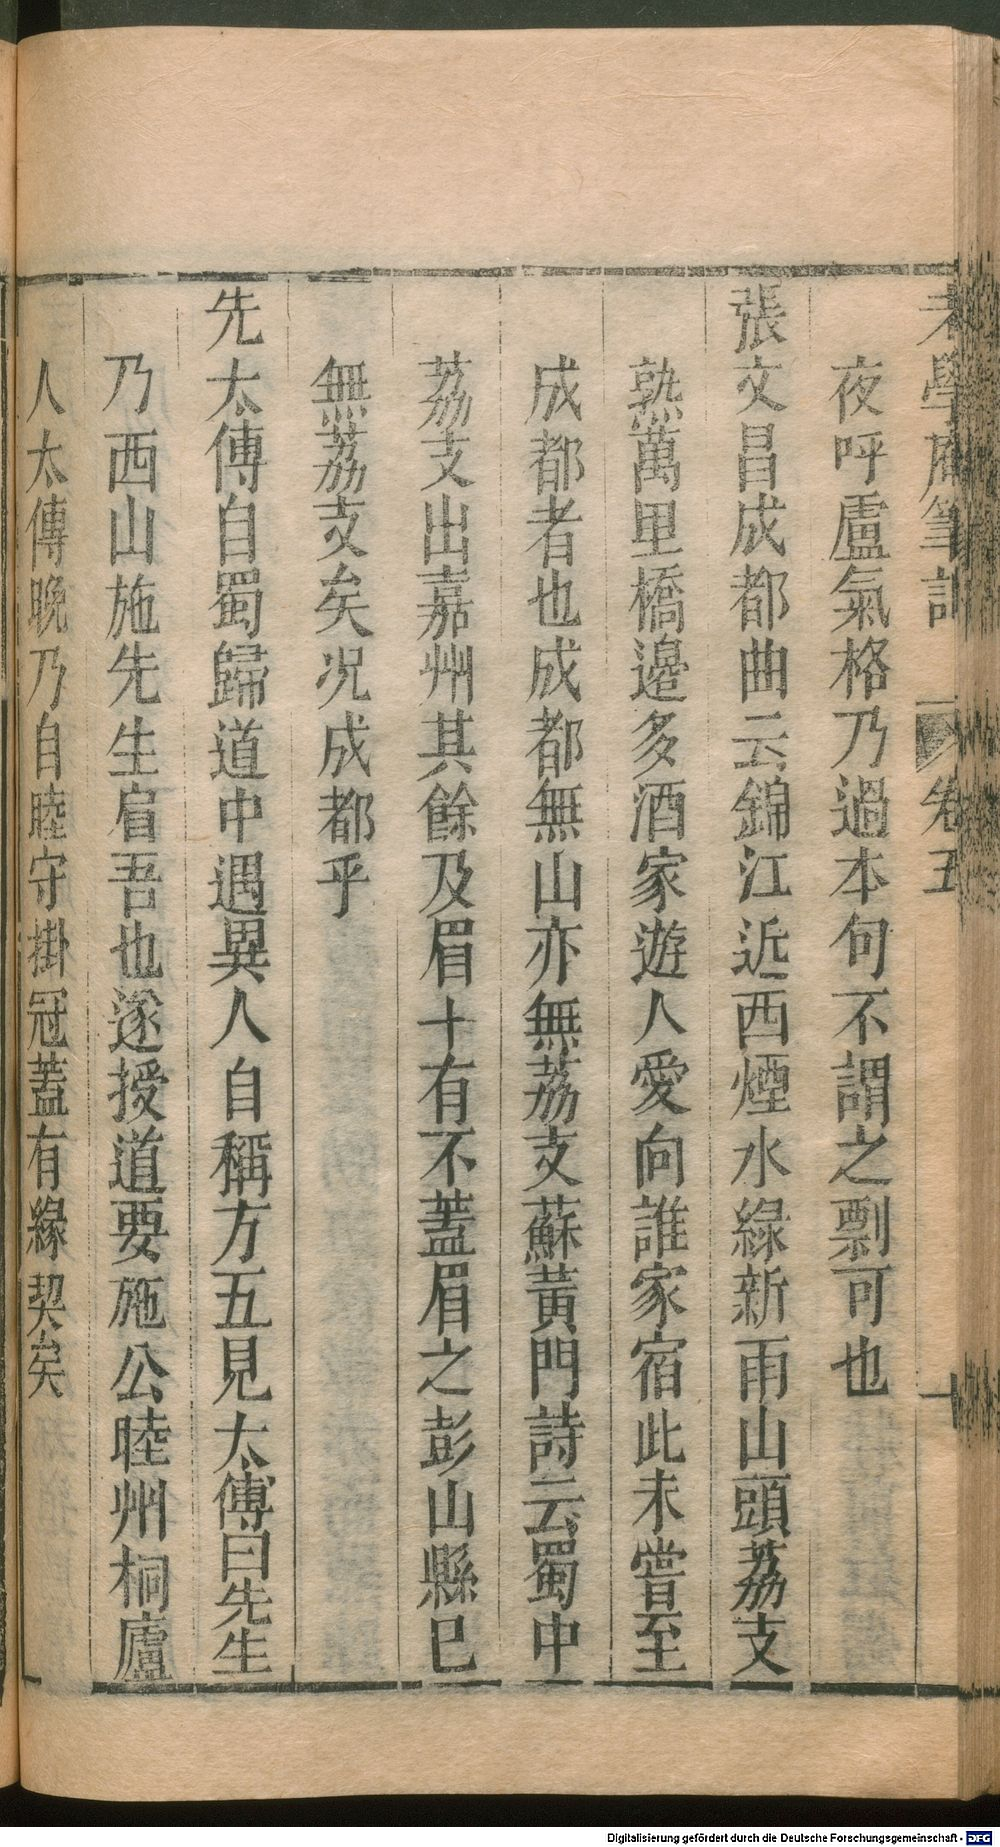 老學庵筆記 卷五 十
夜呼盧氣格乃過本句不謂之剽可也
張文昌成都曲云錦江近西煙水綠新雨山頭荔支
熟萬里橋邊多酒家遊人愛向誰家宿此未嘗至
成都者也成都無山亦無荔支蘇黃門詩云蜀中
荔支出嘉州其餘及眉十有不蓋眉之彭山縣已
無荔支矣況成都乎
先太傅自蜀歸道中遇異人自稱方五見太傅曰先生
乃西山施先生肩吾也遂授道要施公睦州桐廬
人太傅晚乃自睦守掛冠蓋有緣契矣
Digitalisierung gefördert durch die Deutsche Forschungsgemeinschaft - DFG